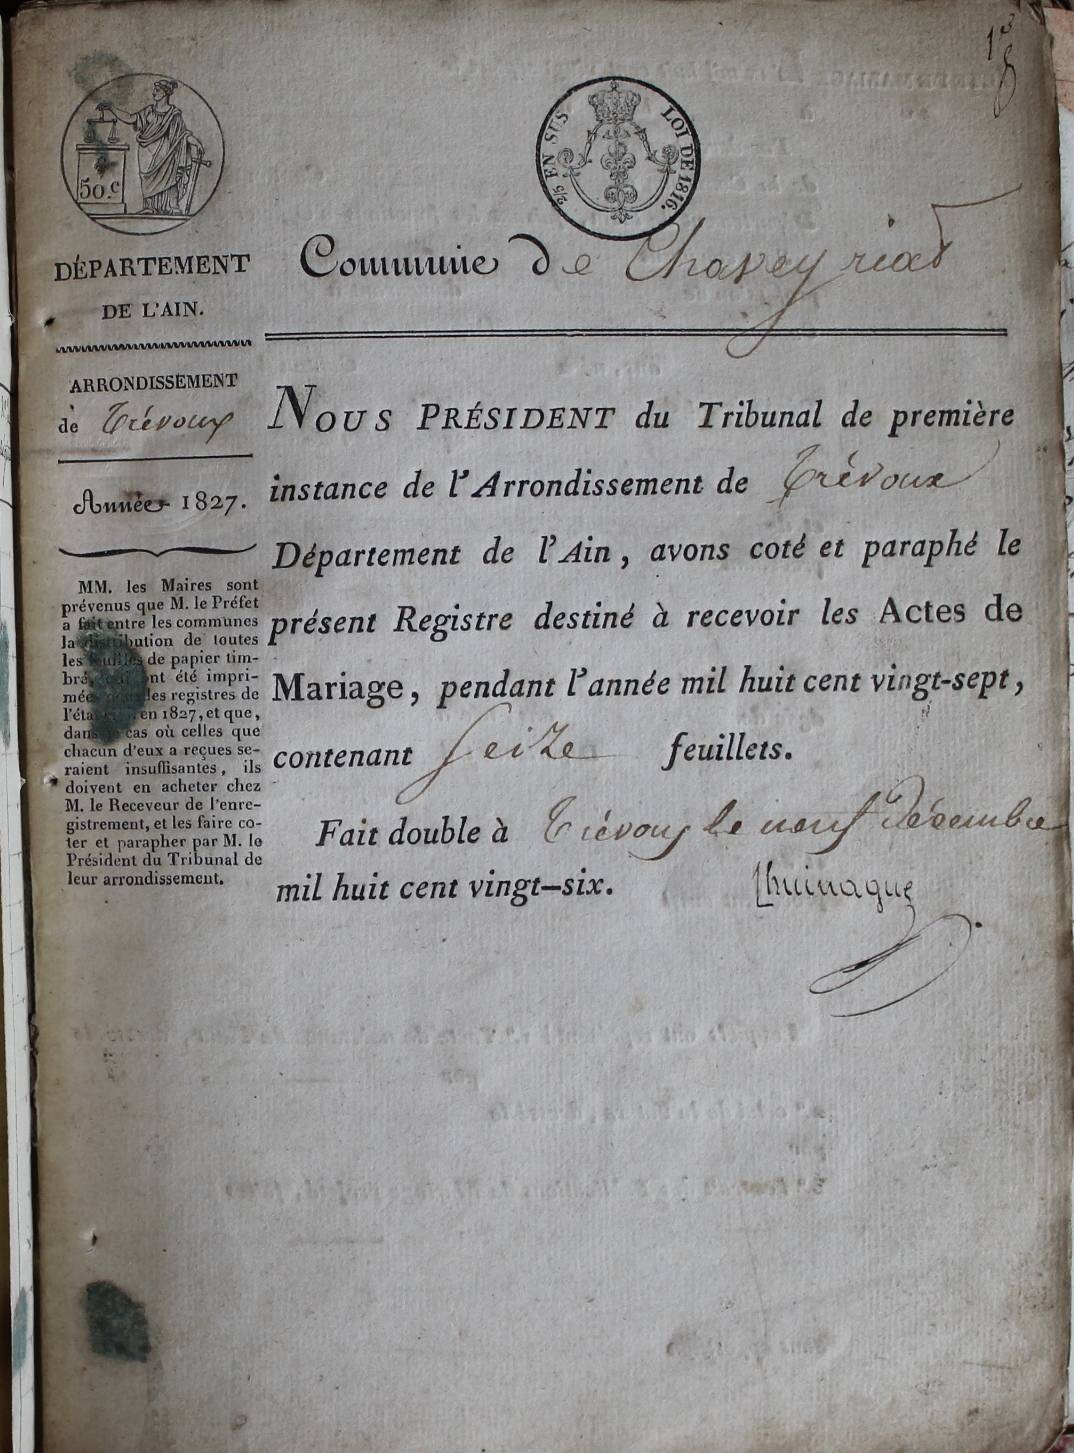 1er
50.c
2/5 EN SUS LOI DE 1816.
DÉPARTEMENT
DE L'AIN.
Commune de Chaveyriat
ARRONDISSEMENT
de Trévoux
Année 1827.
MM. les Maires sont
prévenus que M. le Préfet
a fait entre les communes
la distribution de toutes
les feuilles de papier tim-
bré, qui ont été impri-
mées pour les registres de
l'état civil en 1827, et que,
dans le cas où celles que
chacun d'eux a reçues se-
raient insuffisantes, ils
doivent en acheter chez
M. le Receveur de l'enre-
gistrement, et les faire co-
ter et parapher par M. le
Président du Tribunal de
leur arrondissement.
NOUS PRÉSIDENT du Tribunal de première
instance de l'Arrondissement de Trévoux
Département de l'Ain, avons coté et paraphé le
présent Registre destiné à recevoir les Actes de
Mariage, pendant l'année mil huit cent vingt-sept,
contenant Seize feuillets.
Fait double à Trévoux le neuf Décembre
mil huit cent vingt-six.